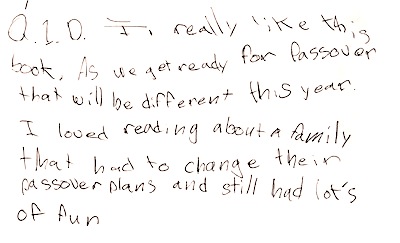 Q.1.D. I, really like this
book. As we get ready for Passover
that will be different this year.
I loved reading about a family
that had to change their
passover plans and still had lot's
of fun